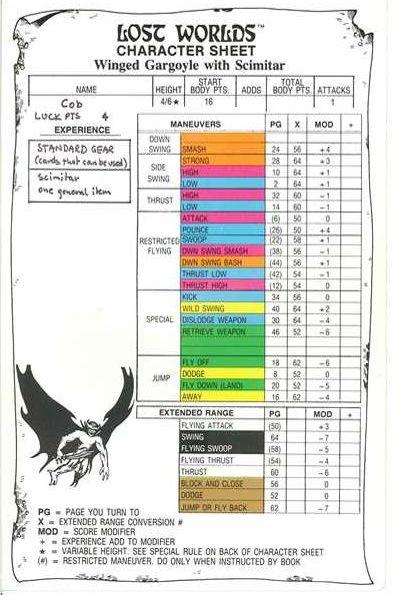 LOST WORLDS™
CHARACTER SHEET
Winged Gargoyle with Scimitar
NAME HEIGHT START BODY PTS. ADDS TOTAL BODY PTS. ATTACKS
Cob 4/6★ 16 1
LUCK PTS 4
EXPERIENCE
STANDARD GEAR
(cards that can be used)
scimitar
one general item
MANEUVERS PG X MOD +
DOWN SWING
SMASH 24 56 +4
SIDE SWING
STRONG 28 64 +3
HIGH 10 64 +1
LOW 2 64 +1
THRUST
HIGH 32 60 −1
LOW 14 60 −1
RESTRICTED FLYING
ATTACK (6) 50 0
POUNCE (26) 50 +4
SWOOP (22) 58 +1
DWN SWNG SMASH (38) 56 −1
DWN SWNG BASH (44) 56 +1
THRUST LOW (42) 54 −1
THRUST HIGH (12) 54 0
SPECIAL
KICK 34 56 0
WILD SWING 40 64 +2
DISLODGE WEAPON 30 64 −4
RETRIEVE WEAPON 46 52 −6
JUMP
FLY OFF 18 62 −6
DODGE 8 52 0
FLY DOWN (LAND) 20 52 −5
AWAY 16 62 −4
EXTENDED RANGE PG MOD +
FLYING ATTACK (50) +3
SWING 64 −7
FLYING SWOOP (58) −5
FLYING THRUST (54) −4
THRUST 60 −6
BLOCK AND CLOSE 56 0
DODGE 52 0
JUMP OR FLY BACK 62 −7
PG = PAGE YOU TURN TO
X = EXTENDED RANGE CONVERSION #
MOD = SCORE MODIFIER
+ = EXPERIENCE ADD TO MODIFIER
★ = VARIABLE HEIGHT. SEE SPECIAL RULE ON BACK OF CHARACTER SHEET
(#) = RESTRICTED MANEUVER. DO ONLY WHEN INSTRUCTED BY BOOK